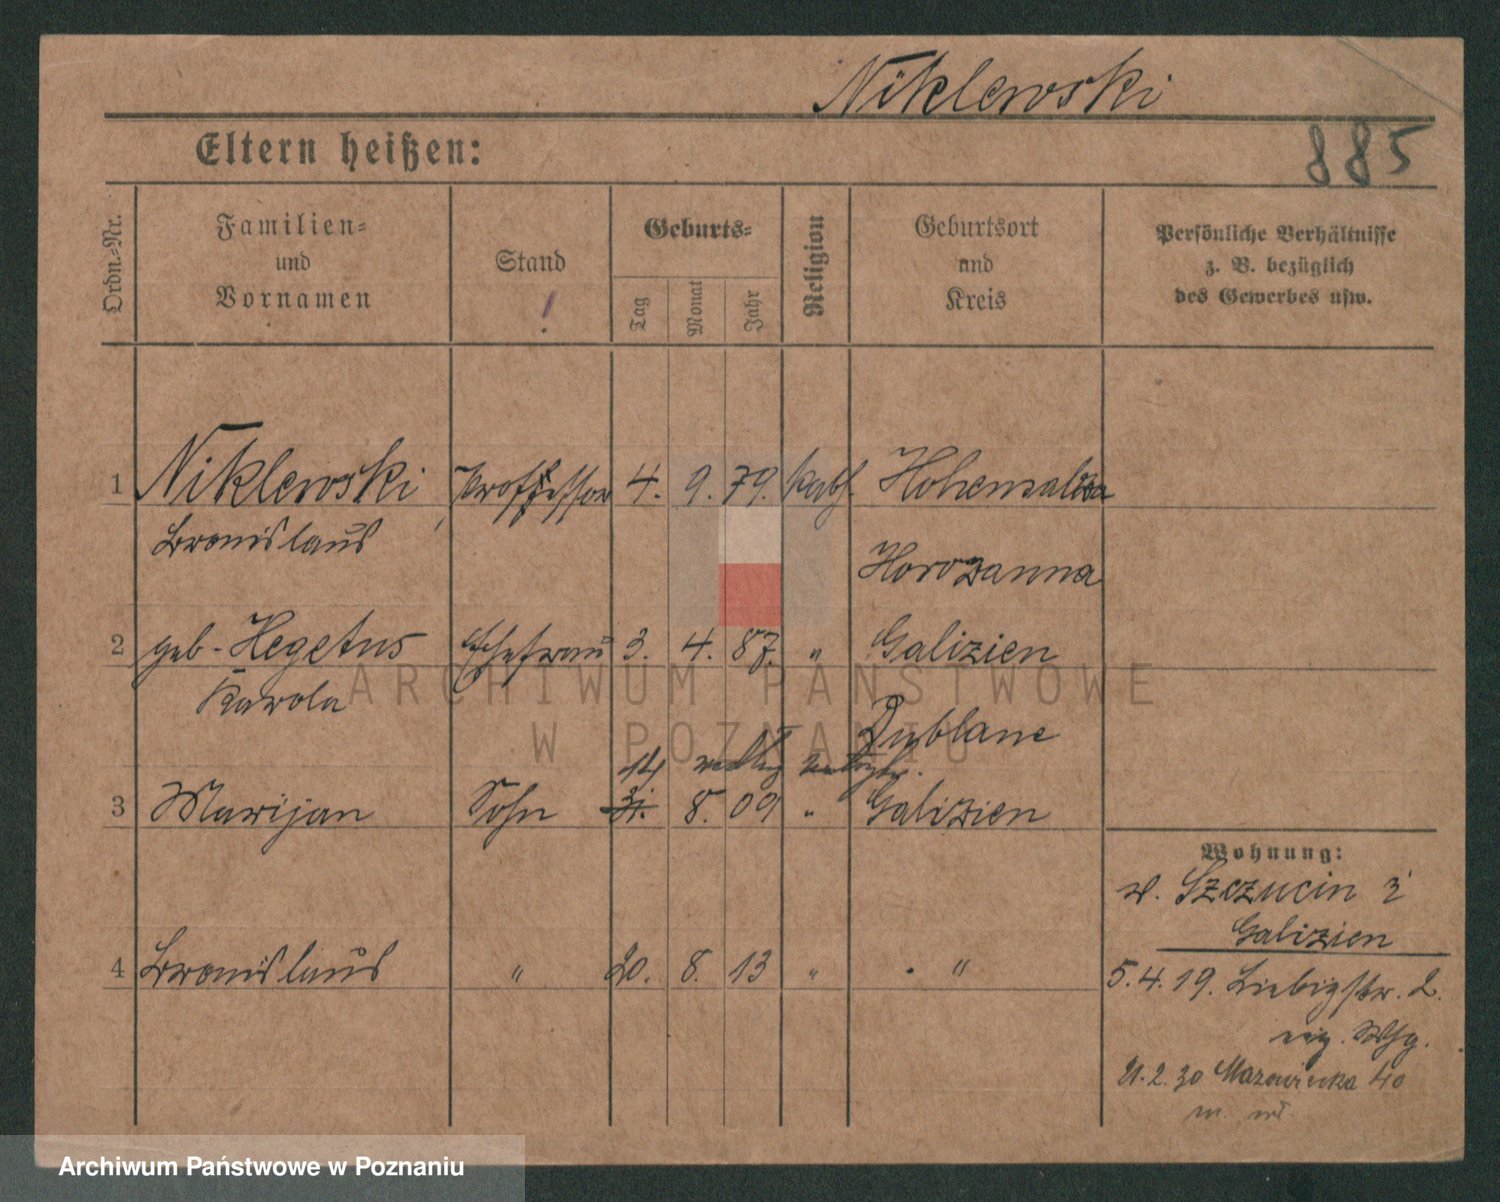 Niklewski
885
Eltern heißen:
Ordn.-Nr.
Familien=
und
Vornamen
Stand
!
Geburts=
Tag
Monat
Jahr
Religion
Geburtsort
und
Kreis
Persönliche Verhältnisse
z. B. bezüglich
des Gewerbes usw.
1 Niklewski Professor 4. 9. 79. kath. Hohensalza
Bronislaus
Horozanna
2 geb. Hegetus Ehefrau 3. 4. 87. " Galizien
Karola
Dublane
14
3 Marijan Sohn 31. 8. 09 " Galizien
Wohnung:
v. Szczucin i
Galizien
4 Bronislaus " 20. 8. 13 " "
5.4.19. Liebigstr. 2.
eig. Whg.
21.2.30 Mazowiecka 40
ARCHIWUM PAŃSTWOWE
W POZNANIU
Archiwum Państwowe w Poznaniu